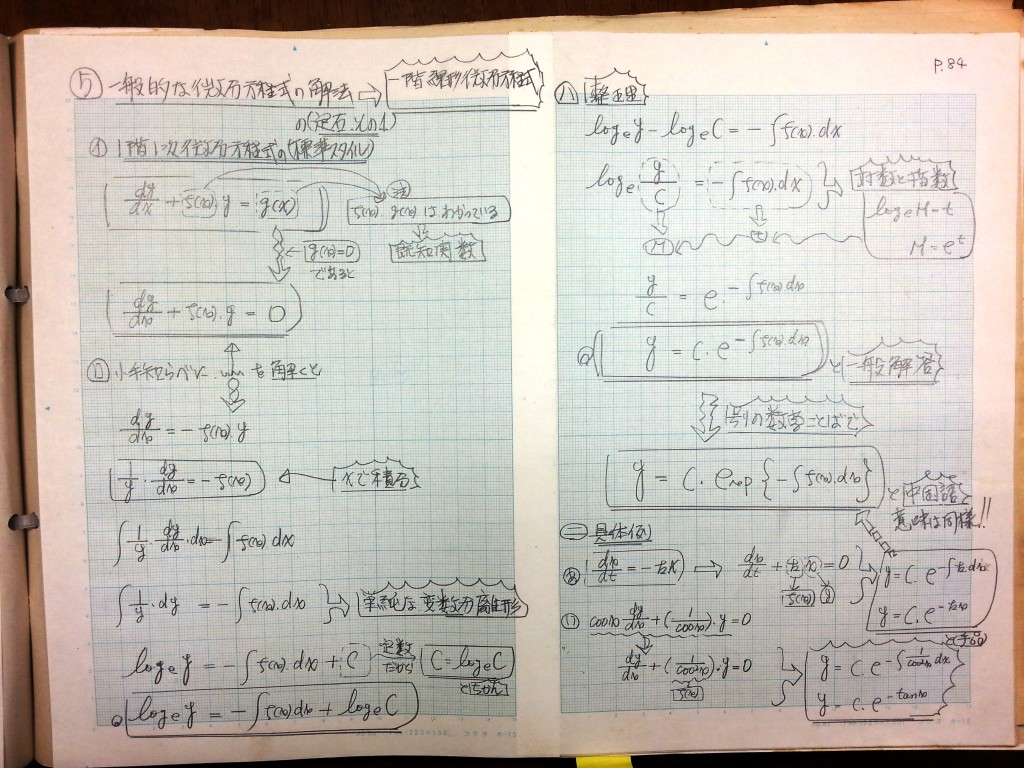 P.84
⑤ 一般的な微分方程式の解法 ⇨ 一階線形微分方程式
の(定石.その1)
㋑ 1階1次微分方程式の(標準スタイル)
dy/dx + f(x).y = g(x)
注
f(x) g(x) はわかっている
既知関数
g(x)=0
であると
dy/dx + f(x).y = 0
㋺ 小手しらべに を解くと
dy/dx = - f(x).y
1/y · dy/dx = - f(x) ← xで積分
∫ 1/y · dy/dx · dx = - ∫ f(x).dx
∫ 1/y · dy = - ∫ f(x).dx 単純な変数分離形
loge y = - ∫ f(x).dx + C 定数だから C = loge C とおく
loge y = - ∫ f(x)dx + loge C
㋩ 整理
loge y - loge C = - ∫ f(x).dx
loge y/C = - ∫ f(x).dx 対数と指数
M t
loge M = t
M = e^t
y/C = e^{- ∫ f(x)dx}
y = C. e^{- ∫ f(x).dx} と一般解答
別の数学ことばで
y = C. exp {- ∫ f(x).dx} と中国語と
意味は同様!!
㊁ 具体例
dx/dt = - kx → dx/dt + k x = 0
f(x) y
y = C. e^{- ∫ k.dx}
y = C. e^{- kx}
cos²x dy/dx + (1/cos²x).y = 0
dy/dx + (1/cos²x).y = 0
f(x)
y = C. e^{- ∫ 1/cos²x dx}
y = C. e^{- tanx}